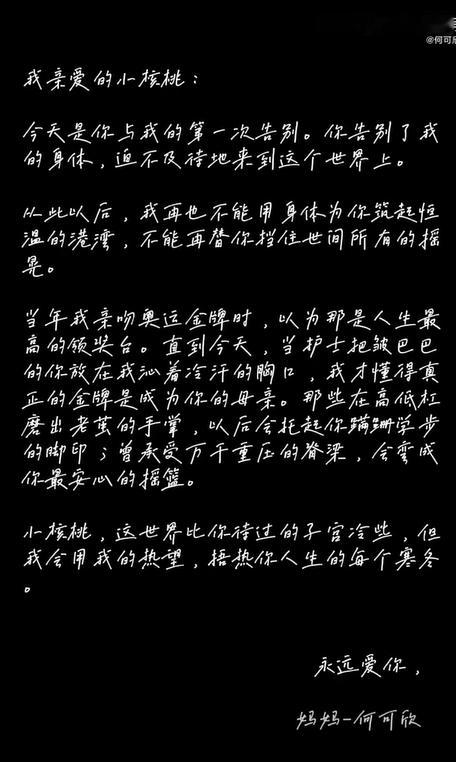 @何可欣
我亲爱的小核桃：
今天是你与我的第一次告别。你告别了我
的身体，迫不及待地来到这个世界上。
从此以后，我再也不能用身体为你筑起恒
温的港湾，不能再替你挡住世间所有的摇
晃。
当年我亲吻奥运金牌时，以为那是人生最
高的领奖台。直到今天，当护士把皱巴巴
的你放在我沁着冷汗的胸口，我才懂得真
正的金牌是成为你的母亲。那些在高低杠
磨出老茧的手掌，以后会托起你蹒跚学步
的脚印；曾承受万千重压的脊梁，会弯成
你最安心的摇篮。
小核桃，这世界比你待过的子宫冷些，但
我会用我的热望，捂热你人生的每个寒冬
。
永远爱你，
妈妈-何可欣